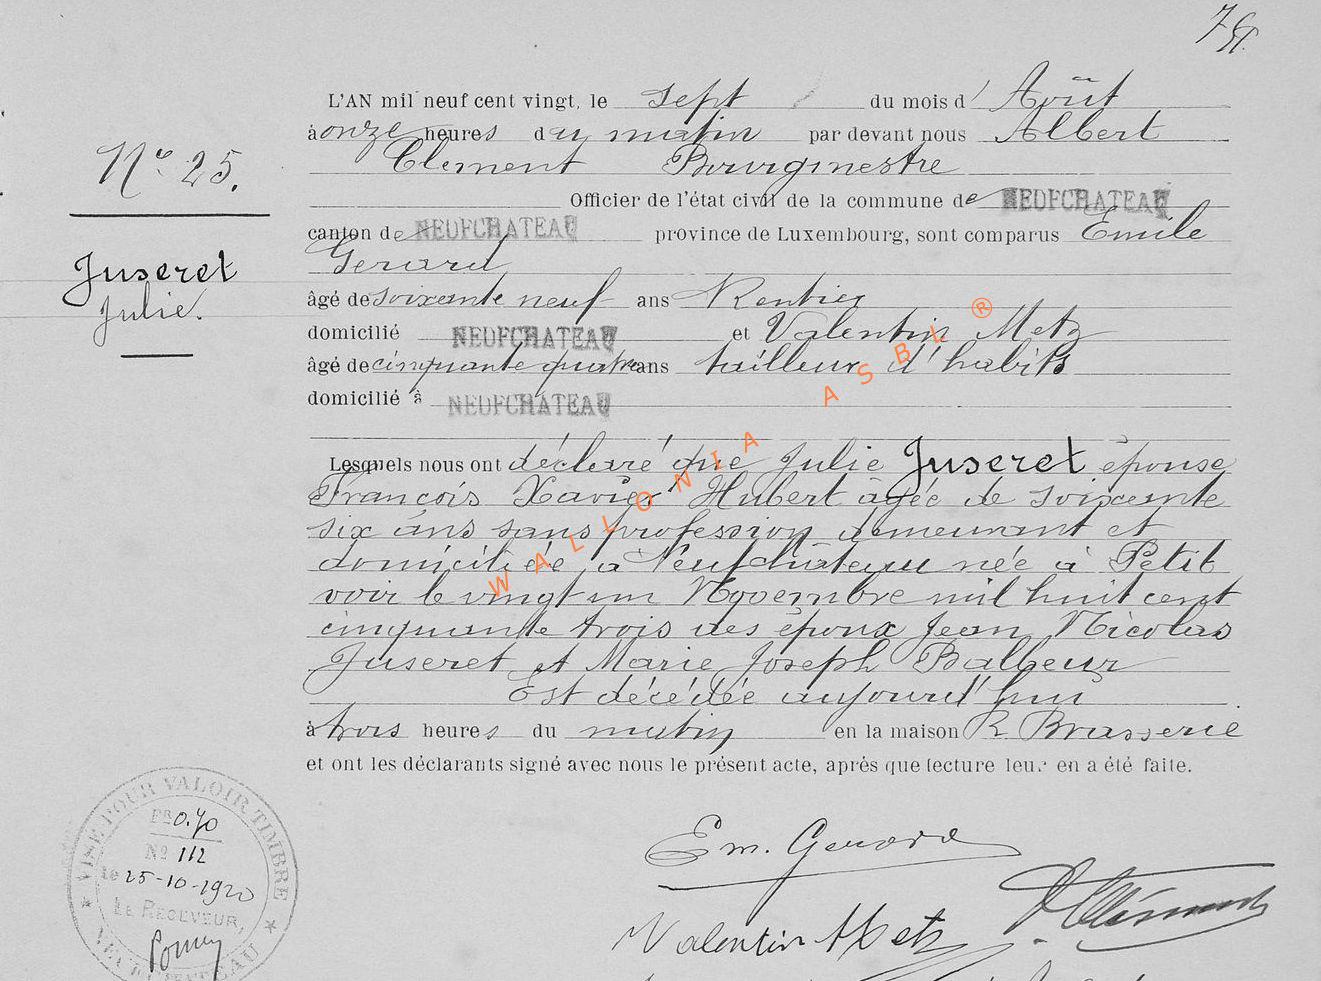 N° 25.
Juseret
Julie.
L'AN mil neuf cent vingt, le sept du mois d' Août
à onze heures du matin par devant nous Albert
Clement Bourgmestre
Officier de l'état civil de la commune de NEUFCHATEAU
canton de NEUFCHATEAU province de Luxembourg, sont comparus Emile
Gerard
âgé de soixante neuf ans Rentier
domicilié NEUFCHATEAU et Valentin Metz
âgé de cinquante quatre ans tailleur d'habits
domicilié à NEUFCHATEAU
Lesquels nous ont déclaré que Julie Juseret épouse
François Xavier Hubert âgée de soixante
six ans sans profession demeurant et
domiciliée à Neufchâteau née à Petit
voir le vingt un Novembre mil huit cent
cinquante trois des époux Jean Nicolas
Juseret et Marie Joseph Balbeur
Est décédée aujourd'hui
à trois heures du matin en la maison R. Brasserie
et ont les déclarants signé avec nous le présent acte, après que lecture leur en a été faite.
VISÉ POUR VALOIR TIMBRE
FR 0.70
N° 112
le 25-10-1920
LE RECEVEUR,
NEUFCHATEAU
Em. Gerard
Valentin Metz
A Clément
WALLONIA ASBL ®